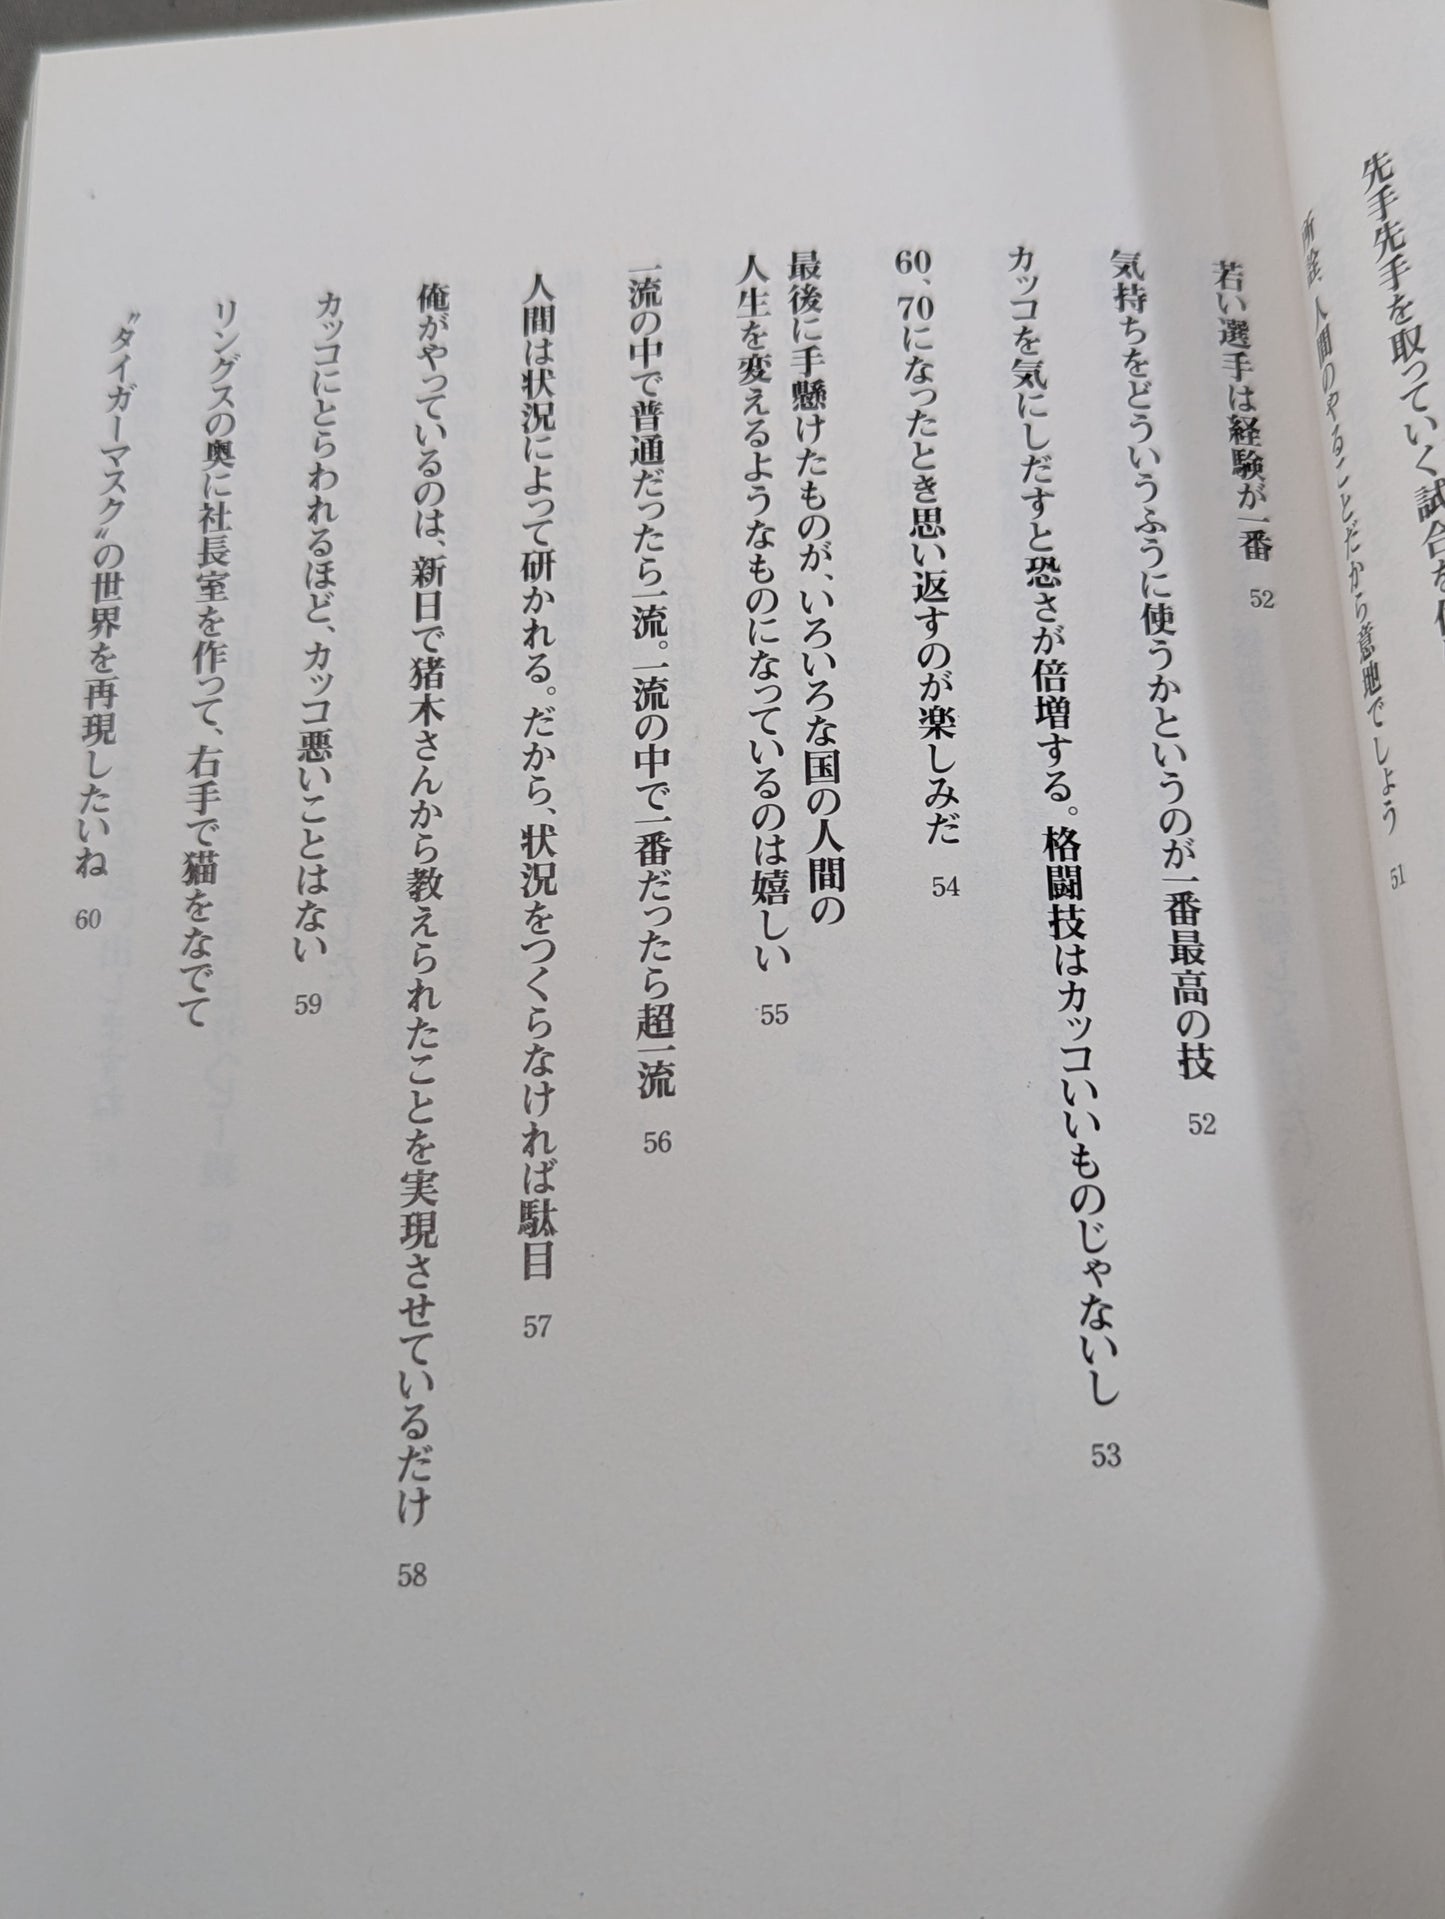 先手先手を取っていく試合を
所詮、人間のやることだから意地でしょう 51
若い選手は経験が一番 52
気持ちをどういうふうに使うかというのが一番最高の技 52
カッコを気にしだすと恐さが倍増する。格闘技はカッコいいものじゃないし 53
60、70になったとき思い返すのが楽しみだ 54
最後に手懸けたものが、いろいろな国の人間の
人生を変えるようなものになっているのは嬉しい 55
一流の中で普通だったら一流。一流の中で一番だったら超一流 56
人間は状況によって研かれる。だから、状況をつくらなければ駄目 57
俺がやっているのは、新日で猪木さんから教えられたことを実現させているだけ 58
カッコにとらわれるほど、カッコ悪いことはない 59
リングスの奥に社長室を作って、右手で猫をなでて
〝タイガーマスク〟の世界を再現したいね 60